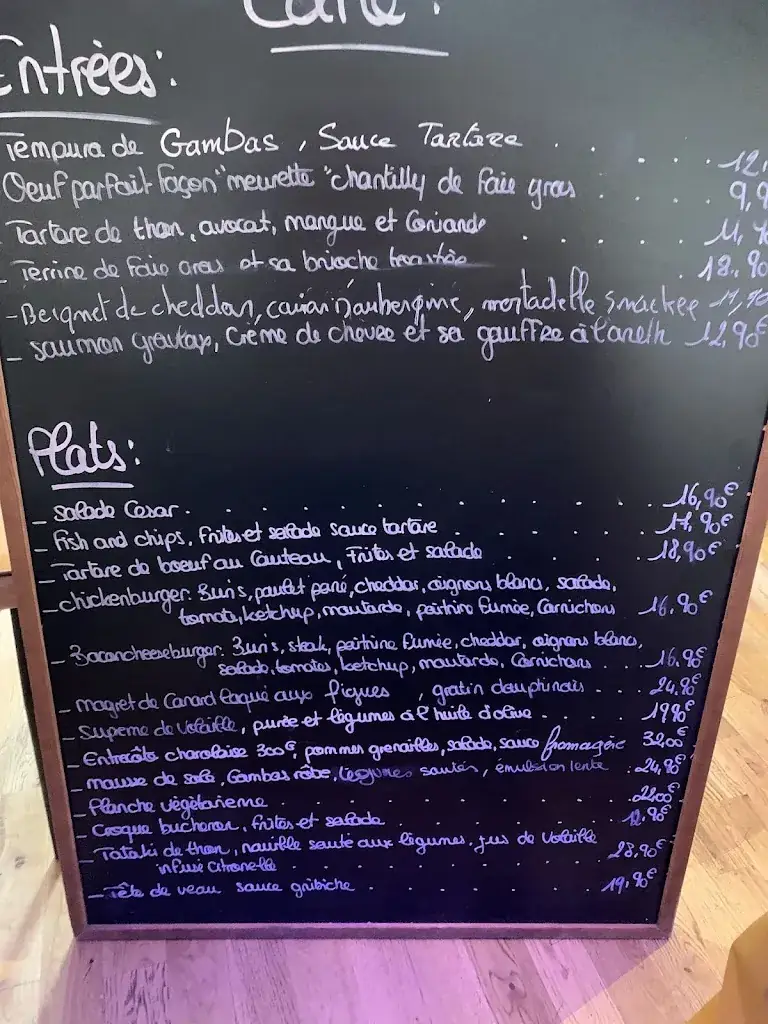 Carte:
Entrées:
Tempura de Gambas, Sauce Tartare . . . . . . 12,
Oeuf parfait façon "meurette" chantilly de foie gras . . . . 9,9
- Tartare de thon, avocat, mangue et Coriande . . . . . . 11,90
- Terrine de foie gras et sa brioche toastée . . . 18.90
- Beignet de cheddar, caviar D'aubergine, mortadelle snackée 11,90
- saumon gravlax, Crème de chèvre et sa gauffre à l'aneth 12,90€
Plats:
- Salade César . . . . . . . . . . . 16,90€
- Fish and chips, frites et salade sauce tartare . . . . . . 17,90€
- Tartare de boeuf au Couteau, Frites et salade . . . . . 18,90€
- chickenburger: Bun's, poulet pané, cheddar, oignons blancs, salade,
tomate, ketchup, moutarde, poitrine fumée, Cornichons 16,90€
- Baconcheeseburger: Bun's, steak, poitrine fumée, cheddar, oignons blancs,
salade, tomates, ketchup, moutarde, Cornichons . . . . 16.90€
- magret de Canard laqué aux figues , gratin dauphinois . . . 24,90€
- Supreme de Volaille, purée et légumes à l'huile d'olive . . . 19,90€
- Entrecôte charolaise 300g, pommes grenailles, salade, sauce fromagère 32,00€
- mousse de sole, Gambas rôtie, légumes sautés, émulsion lente . 24,90€
- Planche végétarienne . . . . . . . . . . 22,00€
- Croque bucheron, frites et salade . . . . . . . 12,90€
- Tataki de thon, nouille sauté aux légumes, jus de Volaille
infusé citronelle . . . . . . . . . 23,90€
- Tête de veau sauce gribiche . . . . . . . . 19,90€